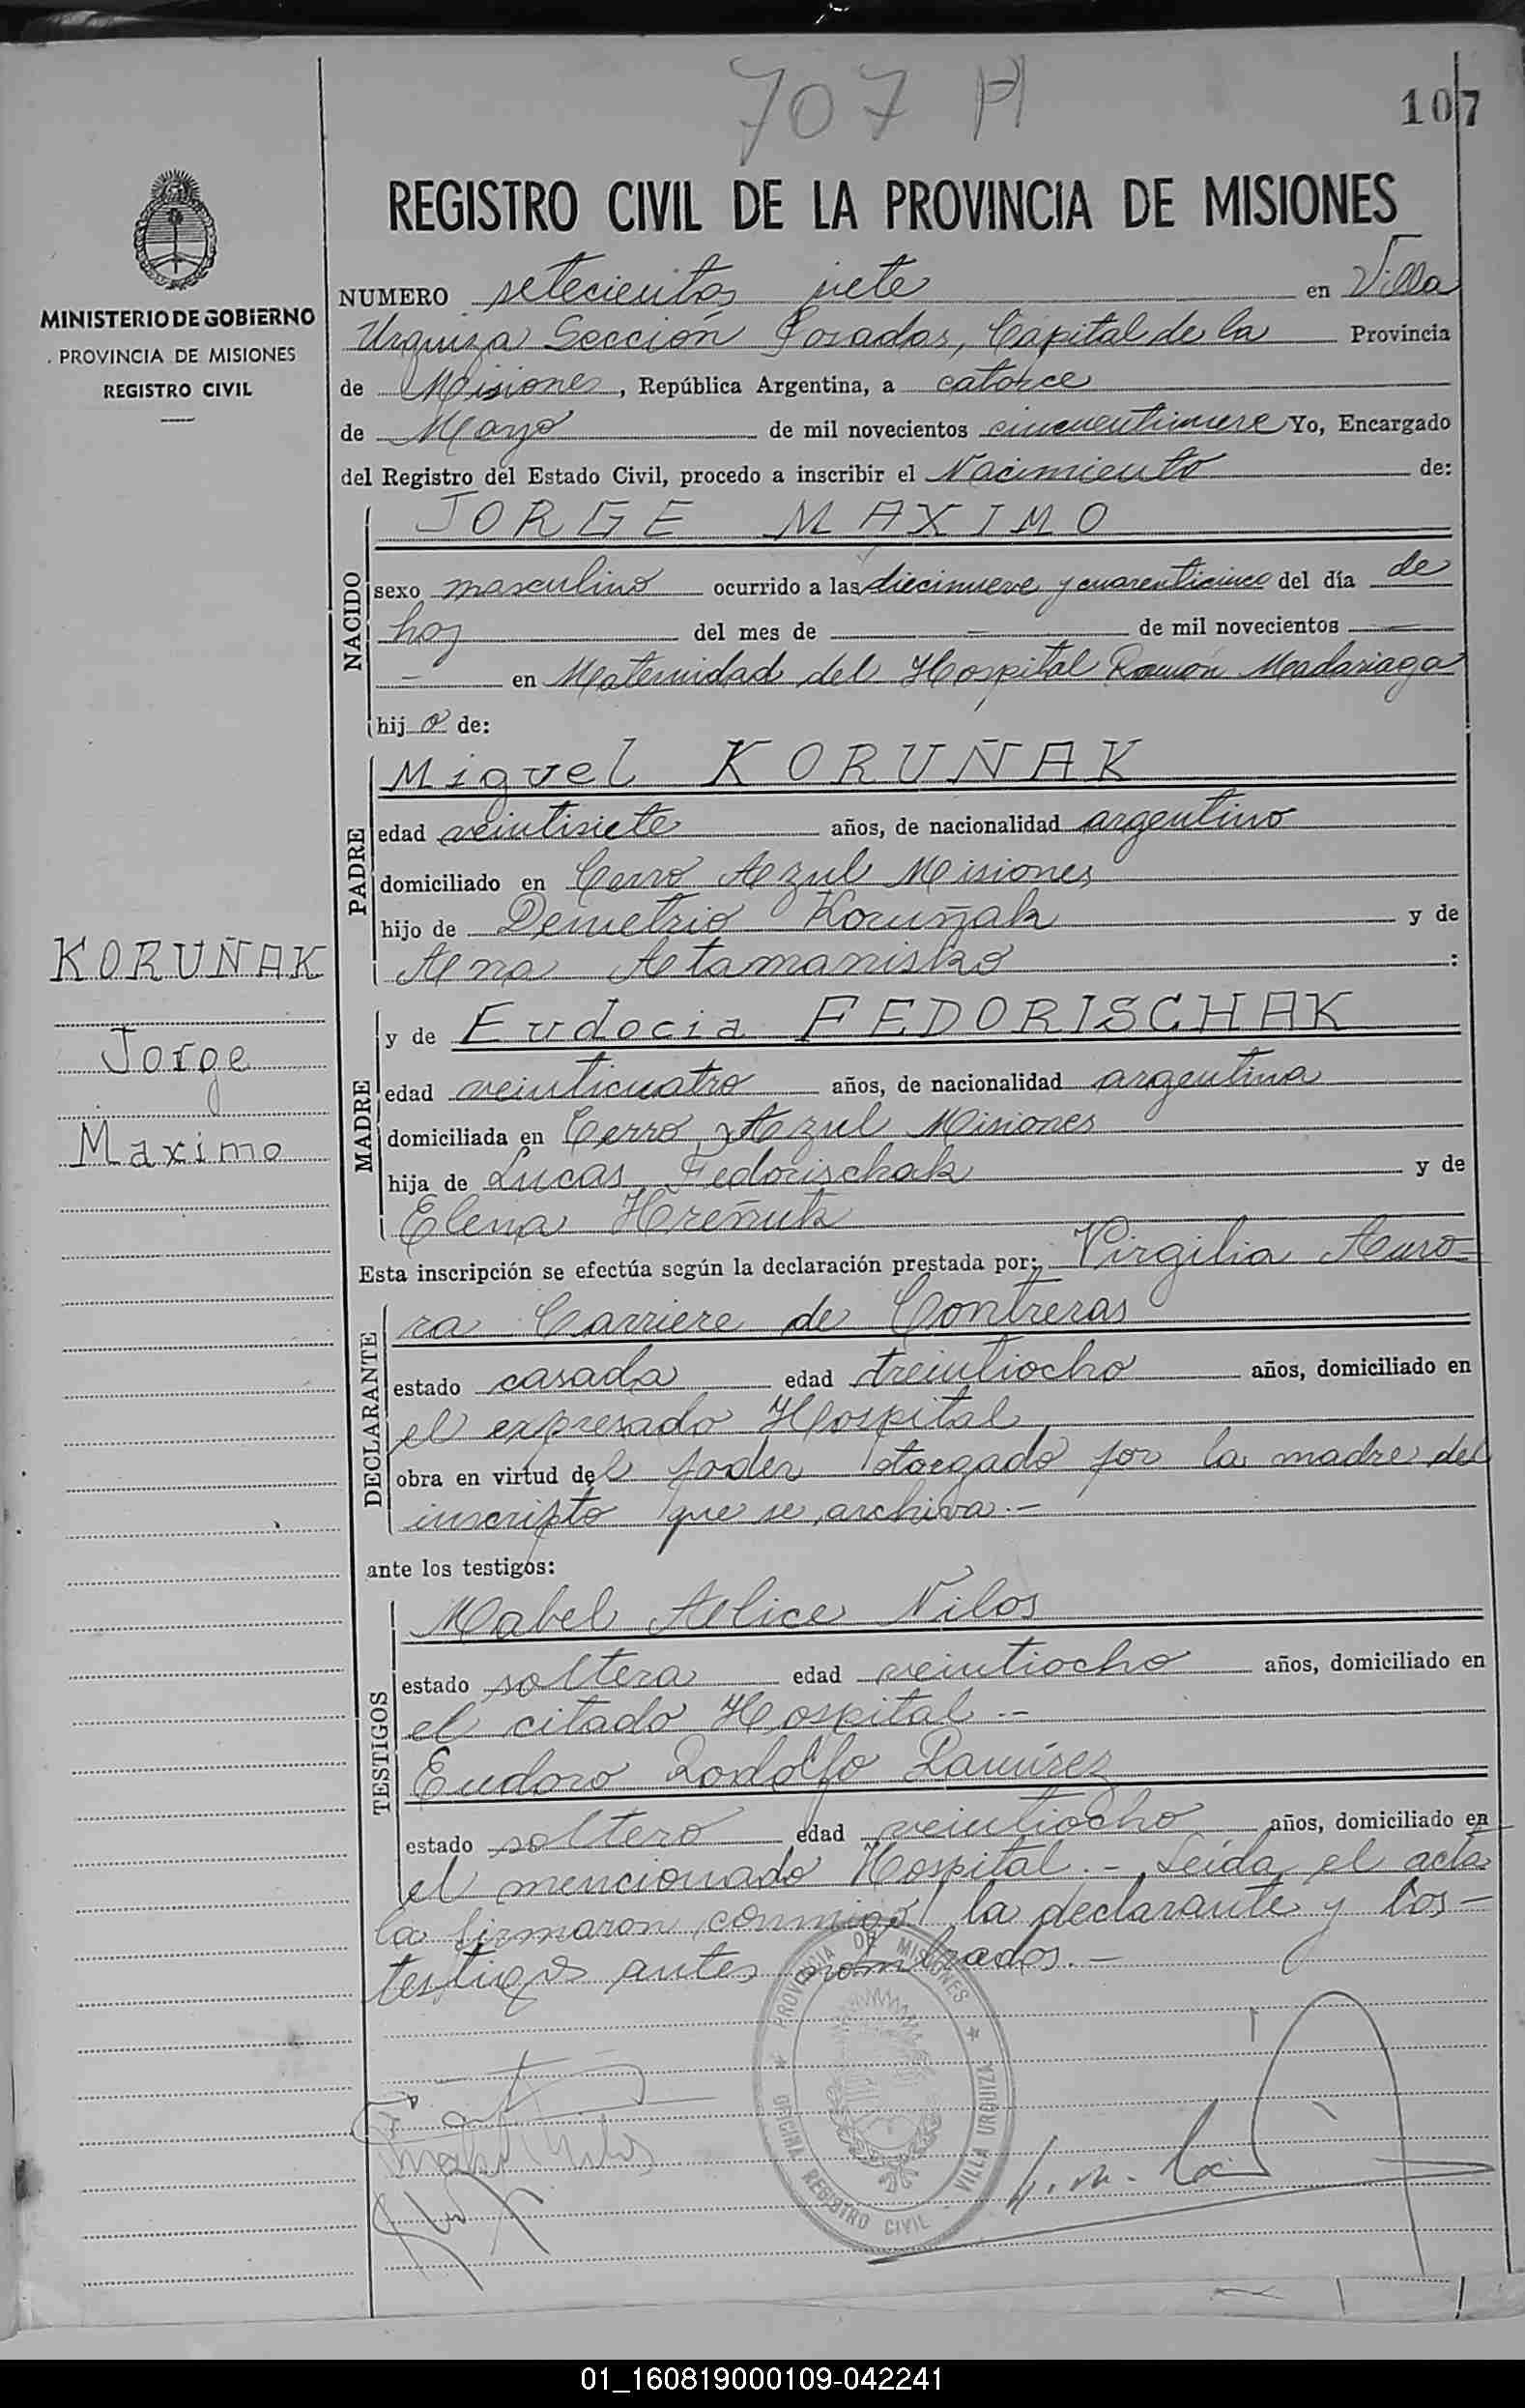 707 A
107
MINISTERIO DE GOBIERNO
PROVINCIA DE MISIONES
REGISTRO CIVIL
REGISTRO CIVIL DE LA PROVINCIA DE MISIONES
NUMERO setecientos siete en Villa
Urquiza Sección Posadas, Capital de la Provincia
de Misiones, República Argentina, a catorce
de Mayo de mil novecientos cincuentinueve Yo, Encargado
del Registro del Estado Civil, procedo a inscribir el Nacimiento de:
NACIDO
JORGE MAXIMO
sexo masculino ocurrido a las diecinueve y cuarenticinco del día de
hoy del mes de - de mil novecientos -
- en Maternidad del Hospital Ramón Madariaga
hijo de:
PADRE
Miguel KORUÑAK
edad veintisiete años, de nacionalidad argentino
domiciliado en Cerro Azul Misiones
hijo de Demetrio Koruñak y de
Ana Atamanisko :
MADRE
y de Eudocia FEDORISCHAK
edad veinticuatro años, de nacionalidad argentina
domiciliada en Cerro Azul Misiones
hija de Lucas Fedorischak y de
Elena Hreñuk
KORUÑAK
Jorge
Maximo
Esta inscripción se efectúa según la declaración prestada por: Virgilia Auro=
DECLARANTE
ra Carriere de Contreras
estado casada edad treintiocho años, domiciliado en
el expresado Hospital
obra en virtud del poder otorgado por la madre del
inscripto que se archiva.-
ante los testigos:
TESTIGOS
Mabel Alice Nilos
estado soltera edad veintiocho años, domiciliado en
el citado Hospital.-
Eudoro Rodolfo Ramírez
estado soltero edad veintiocho años, domiciliado en
el mencionado Hospital.- Leída el acta
la firmaron conmigo la declarante y los-
testigos antes nombrados.-
PROVINCIA DE MISIONES
OFICINA REGISTRO CIVIL - VILLA URQUIZA
01_160819000109-042241